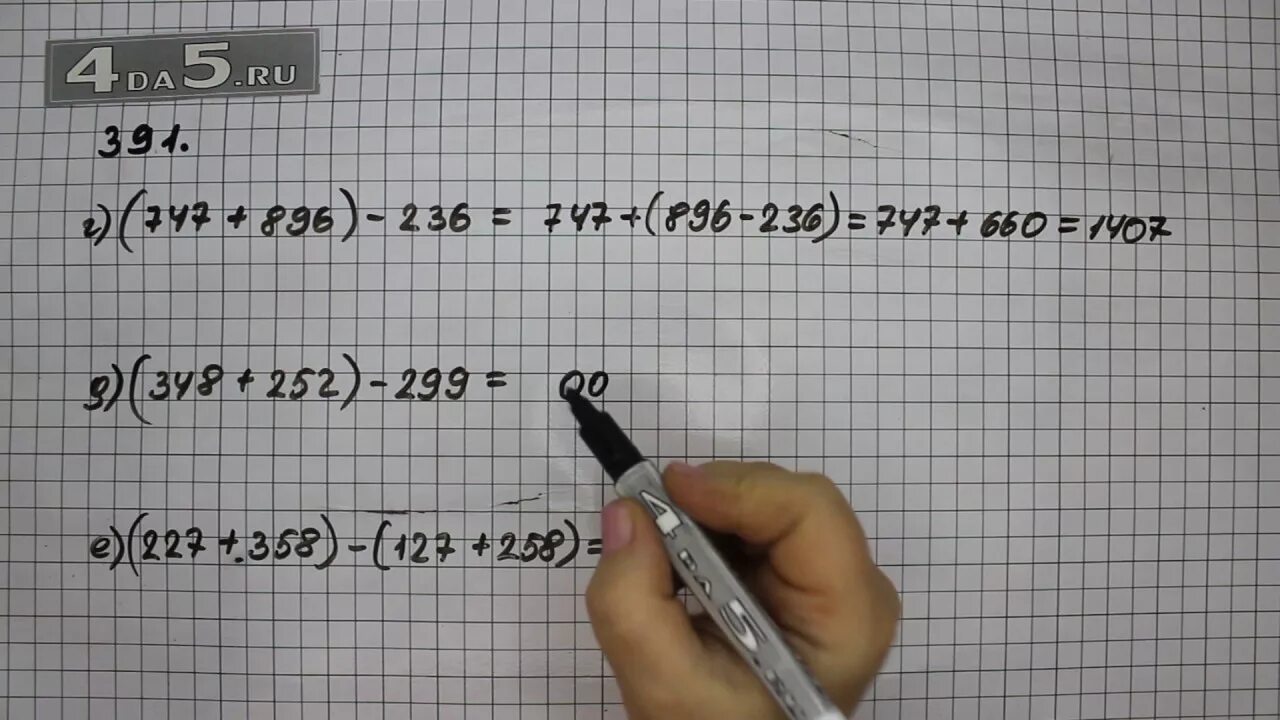 4DA5.RU
391.
г) (747 + 896) - 236 = 747 + (896 - 236) = 747 + 660 = 1407
д) (348 + 252) - 299 = 00
е) (227 + 358) - (127 + 258) =
4 DA 5